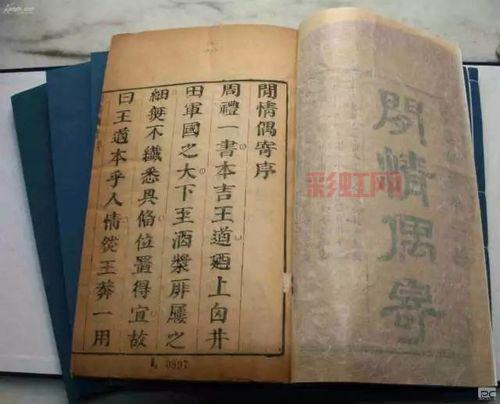 閒情偶寄
閒情偶寄序
周禮一書本言王道廼上自井
田軍國之大下至酒漿屝屨之
細無不纖悉具俻位置得宜故
曰王道本乎人情從王莽一用
0897
彩虹网
PC